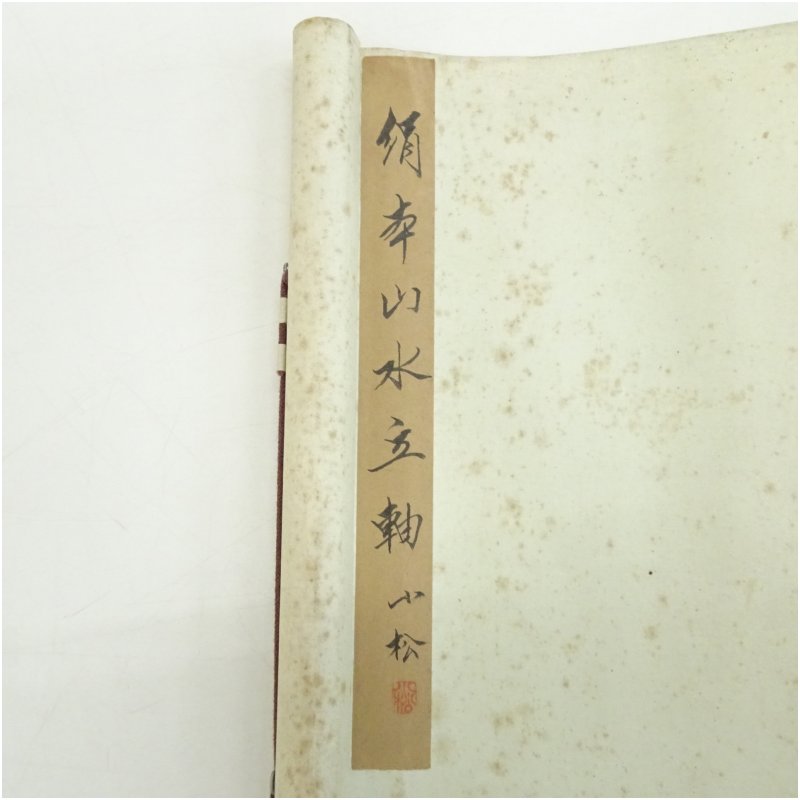 絹本山水立軸 小松